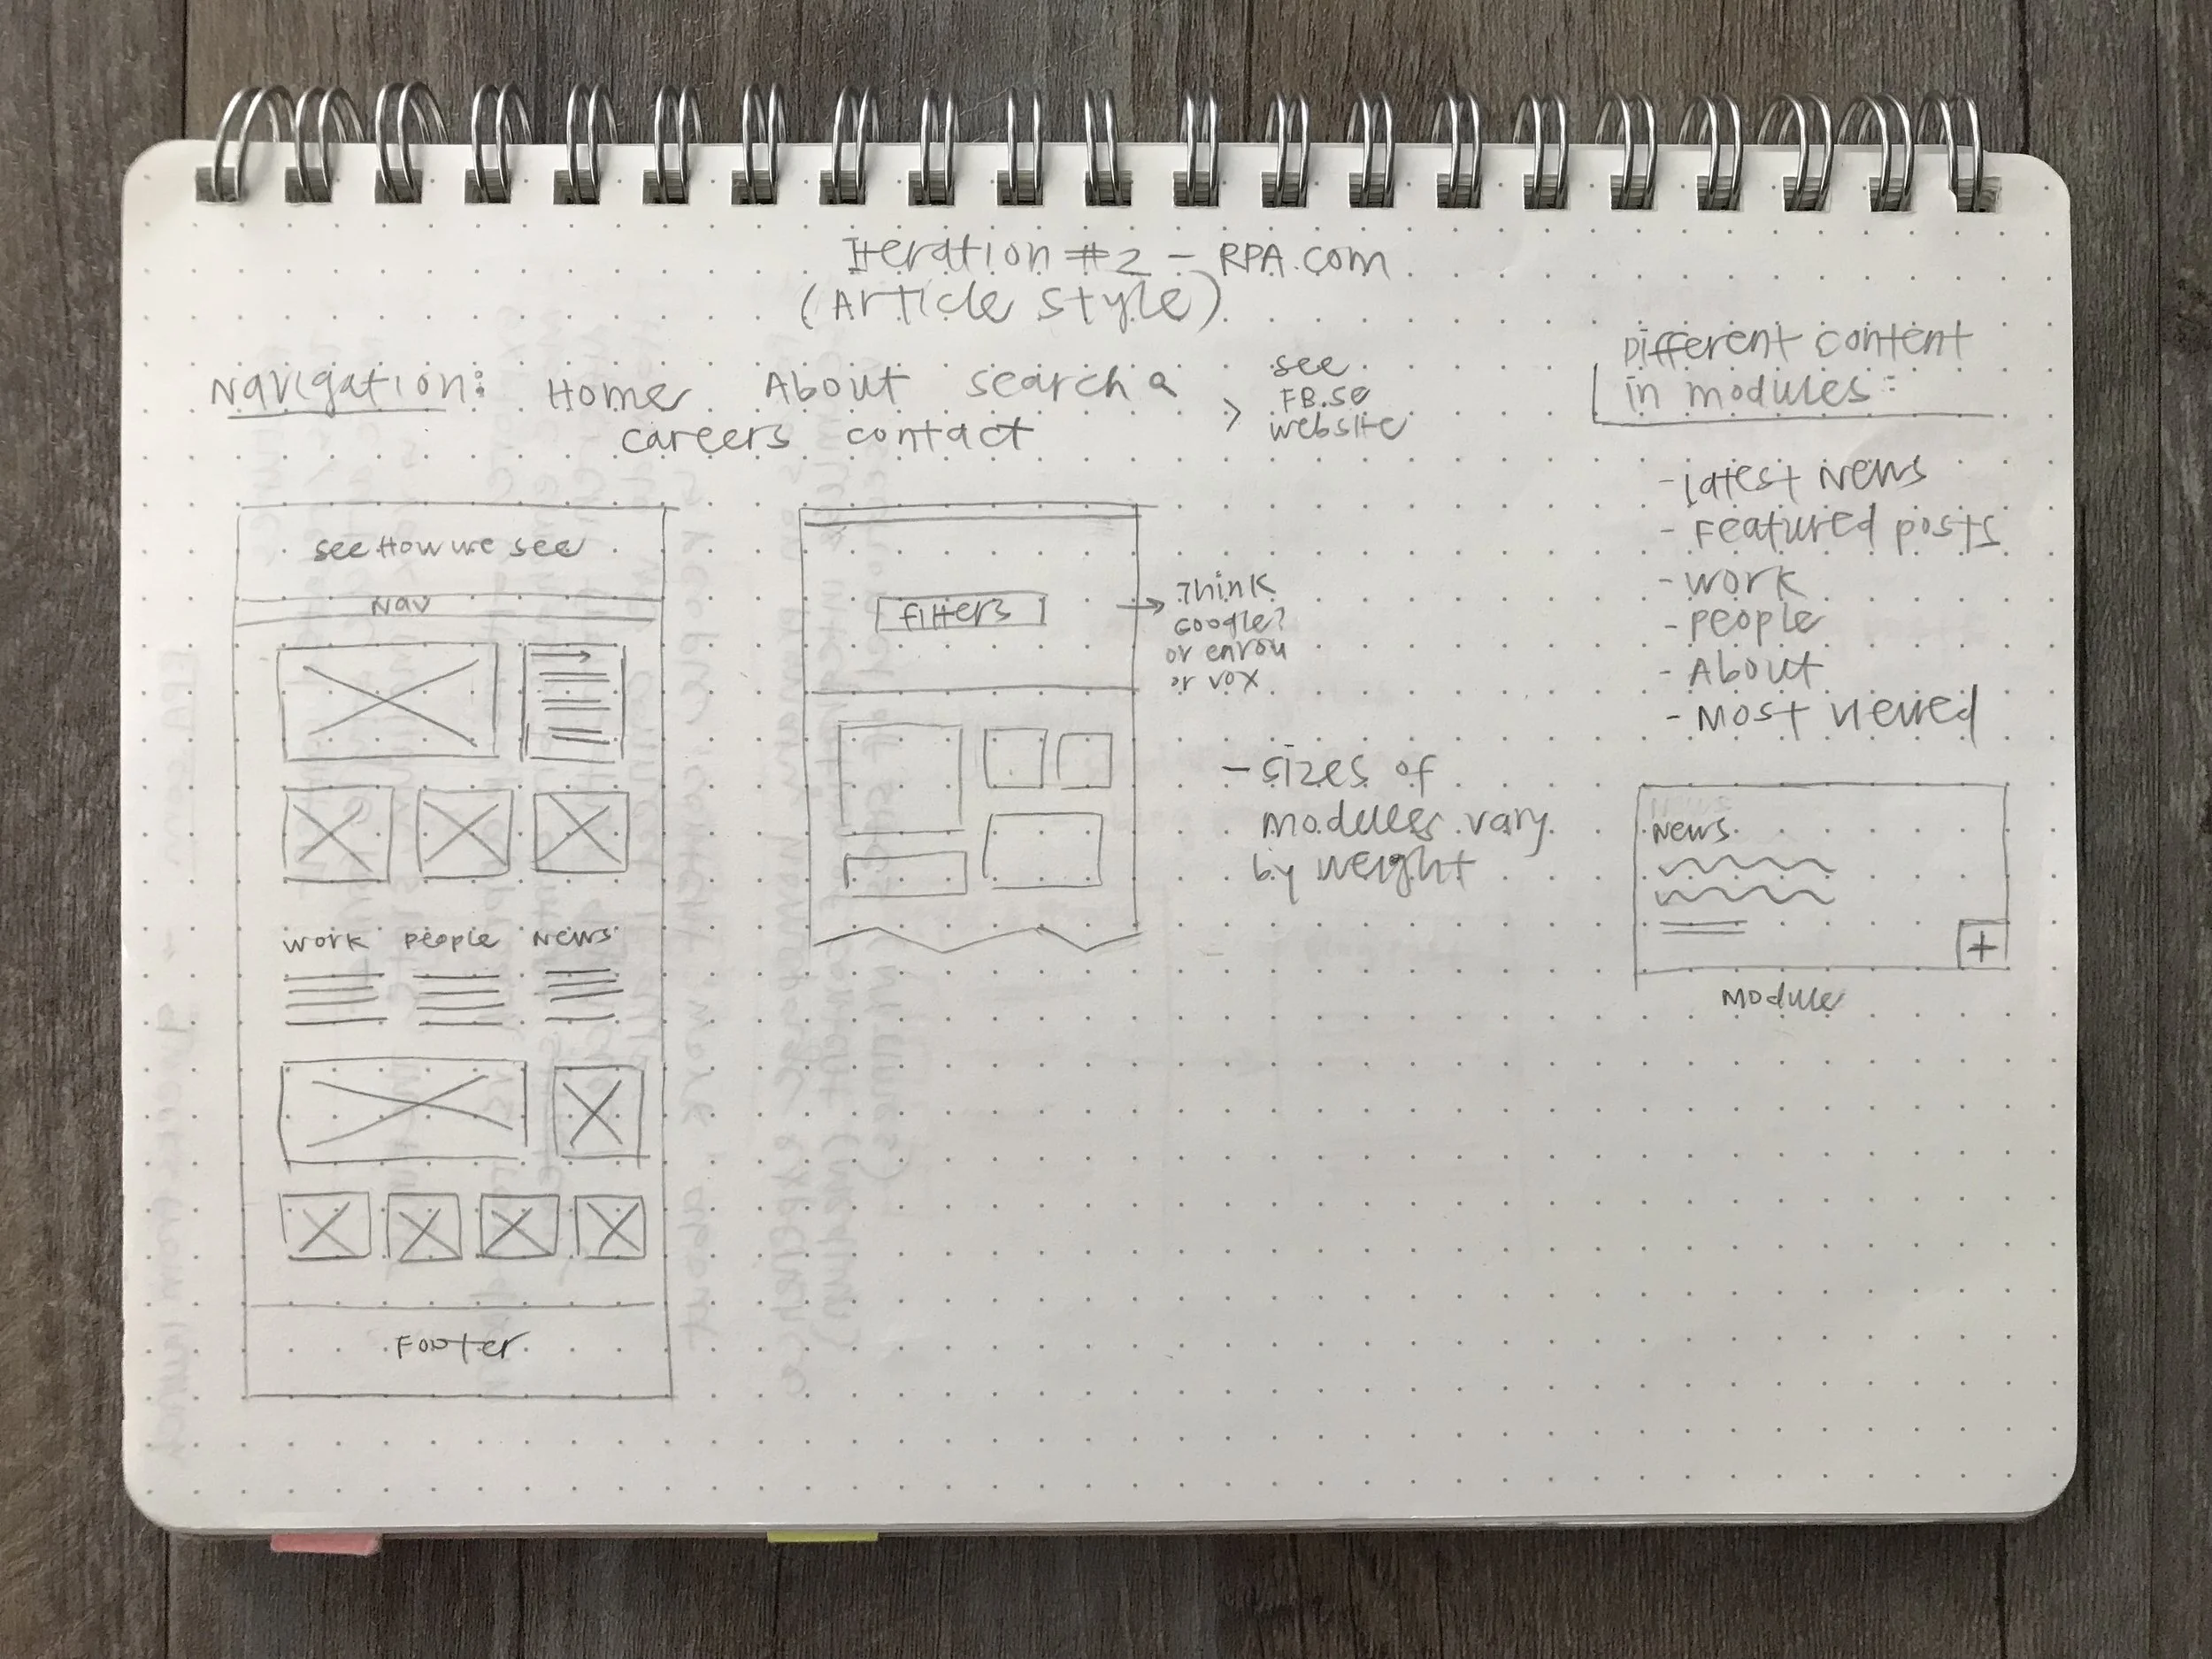 Iteration #2 - RPA.com
(Article style)
Navigation: Home About search
careers contact
> see
FB.se
website
Different content
in modules:
- Latest News
- Featured posts
- work
- people
- About
- Most viewed
see How we see
Nav
work people News
Footer
filters
Think
Google?
or
or vox
- sizes of
modules vary
by weight
News
+
Module